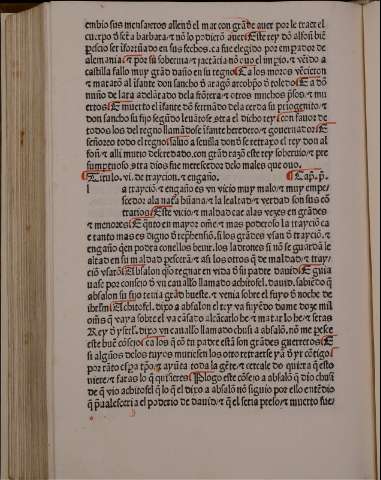 embio sus mensajeros allende el mar con grãde auer por le traer el
cuerpo đ sctã barbara / ⁊ nõ lo podierõ auer Este rey dõ alfoñ bien
pescio ser infortunado en sus fechos. ca fue elegido por emperador de
alemania / ⁊ por su soberuia / ⁊ jactãcia nõ ouo el imperio. ⁊ veniẽdo a
castilla fallo muy grãd daño en su regno Ca los moros vẽcieron
⁊ mataron al ifante don sancho đ aragõ arçobispo đ toledo E a dõ
nuño de lara adelãtado dela frõtera / ⁊ otros muchos presos. ⁊ mu
ertos E muerto el ifante dõ fernãdo dela cerda su priogenito. ⁊
don sancho su fijo segũdo leuãtose cõtra el dicho rey con fauor de
todos los del regno llamãdose ifante heredero. ⁊ gouernador E
señoreo todo el regno saluo a seuilla donđ se retraxo el rey don al
foñ. ⁊ alli murio desheredado. con grãd razõ este rey soberuio. ⁊ pre
sumptuoso. otra dios fue merescedor delo males que ouo.
Titulo. vi. de traycion. ⁊ engaño. Cap. p.
l a trayciõ ⁊ engaño es vn vicio muy malo / ⁊ muy empe
scedor ala natura humana / ⁊ la lealtad / ⁊ verdad son sus cõ
trarios Este vicio ⁊ maldad cae alas vezes en grãdes
⁊ menores E qnto en mayor ome ⁊ mas poderoso la trayciõ ca
e tanto mas es digno đ reprehensiõ. si los grãdes vsan đ trayciõ. ⁊
engaño qen podra conellos beuir. los ladrones si nõ se guardã le
altad en su maldad perescerã / ⁊ asi los otros q de maldad / ⁊ tray
ciõ vsarõ Absalon qso regnar en vida đ su padre dauid E guia
uase por consejo đ vn cauallo llamado achitofel. dauid. sabiẽdo q
absalon su fijo tenia grãd hueste. ⁊ venia sobre el fuyo đ noche de
ihrlm Achitofel. dixo a absalon el rey va fuyẽdo dame doze mil
oms q vaya sobre el va cãsado alcãçarlo he ⁊ matar lo he ⁊ seras
Rey đ ysrl. dixo vn cauallo llamado chusi a absalõ. nõ me pesce
este buẽ cõsejo ca los q cõ tu padre estã son grandes guerreros E
si algũos delos tuyos muriesen los otro retraerse yã đ yr cõtigo
por tãto espa tpo / ⁊ ayũta toda la gẽte / ⁊ cercale do quiera q esto
uiere / ⁊ faras lo q quisieres Plogo este cõsejo a absalõ q dio chusi
đ q vio achitofel q lo q el dixo a absalõ nõ siguio por ello entẽdio
q pualesceria el poderio de dauid / ⁊ q el seria preso / ⁊ muerto fue /